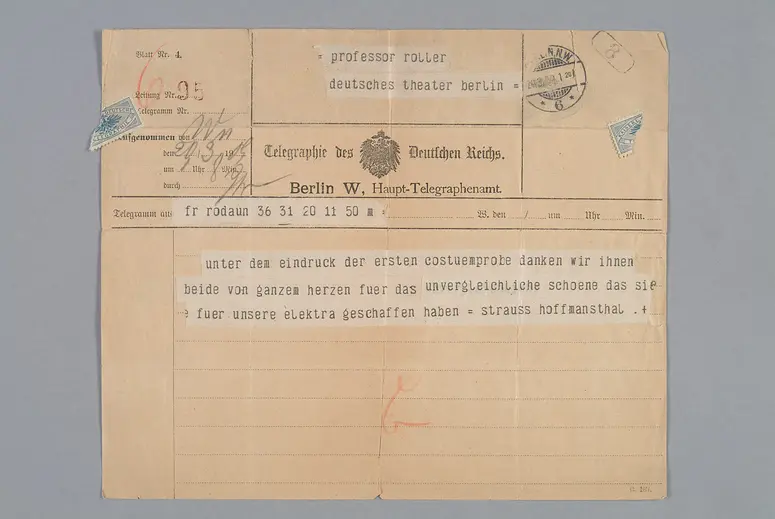 Blatt Nr. 4.
= professor roller
deutsches theater berlin =
Leitung Nr. 95
Telegramm Nr.
Aufgenommen von
den 20/3 19
um Uhr Min.
durch
Telegraphie des Deutschen Reichs.
Berlin W, Haupt-Telegraphenamt.
Telegramm aus fr rodaun 36 31 20 11 50 m = W. den / um Uhr Min.
unter dem eindruck der ersten costuemprobe danken wir ihnen
beide von ganzem herzen fuer das unvergleichliche schoene das sie
e fuer unsere elektra geschaffen haben = strauss hoffmansthal .+